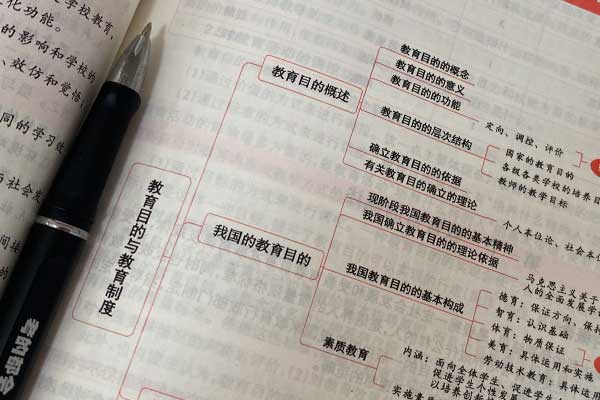 学校教育,
化功能。
的影响和学校的
、效仿和觉悟,
同的学习效
与社会发
间接
教育目的与教育制度
教育目的概述
教育目的的概念
教育目的的意义
教育目的的功能
定向、调控、评价
教育目的的层次结构
国家的教育目的
各级各类学校的培养目
教师的教学目标
确立教育目的的依据
有关教育目的确立的理论
个人本位论、社会本位
我国的教育目的
现阶段我国教育目的的基本精神
我国确立教育目的的理论依据
马克思主义关于
人的全面发展学
我国教育目的的基本构成
德育:保证方向、保持
智育:认识基础
体育:物质保证
美育:具体运用和实施
劳动技术教育:具体运用
素质教育
内涵:面向全体学生、促进学生
促进学生个性发展
以培养创新
实施素质